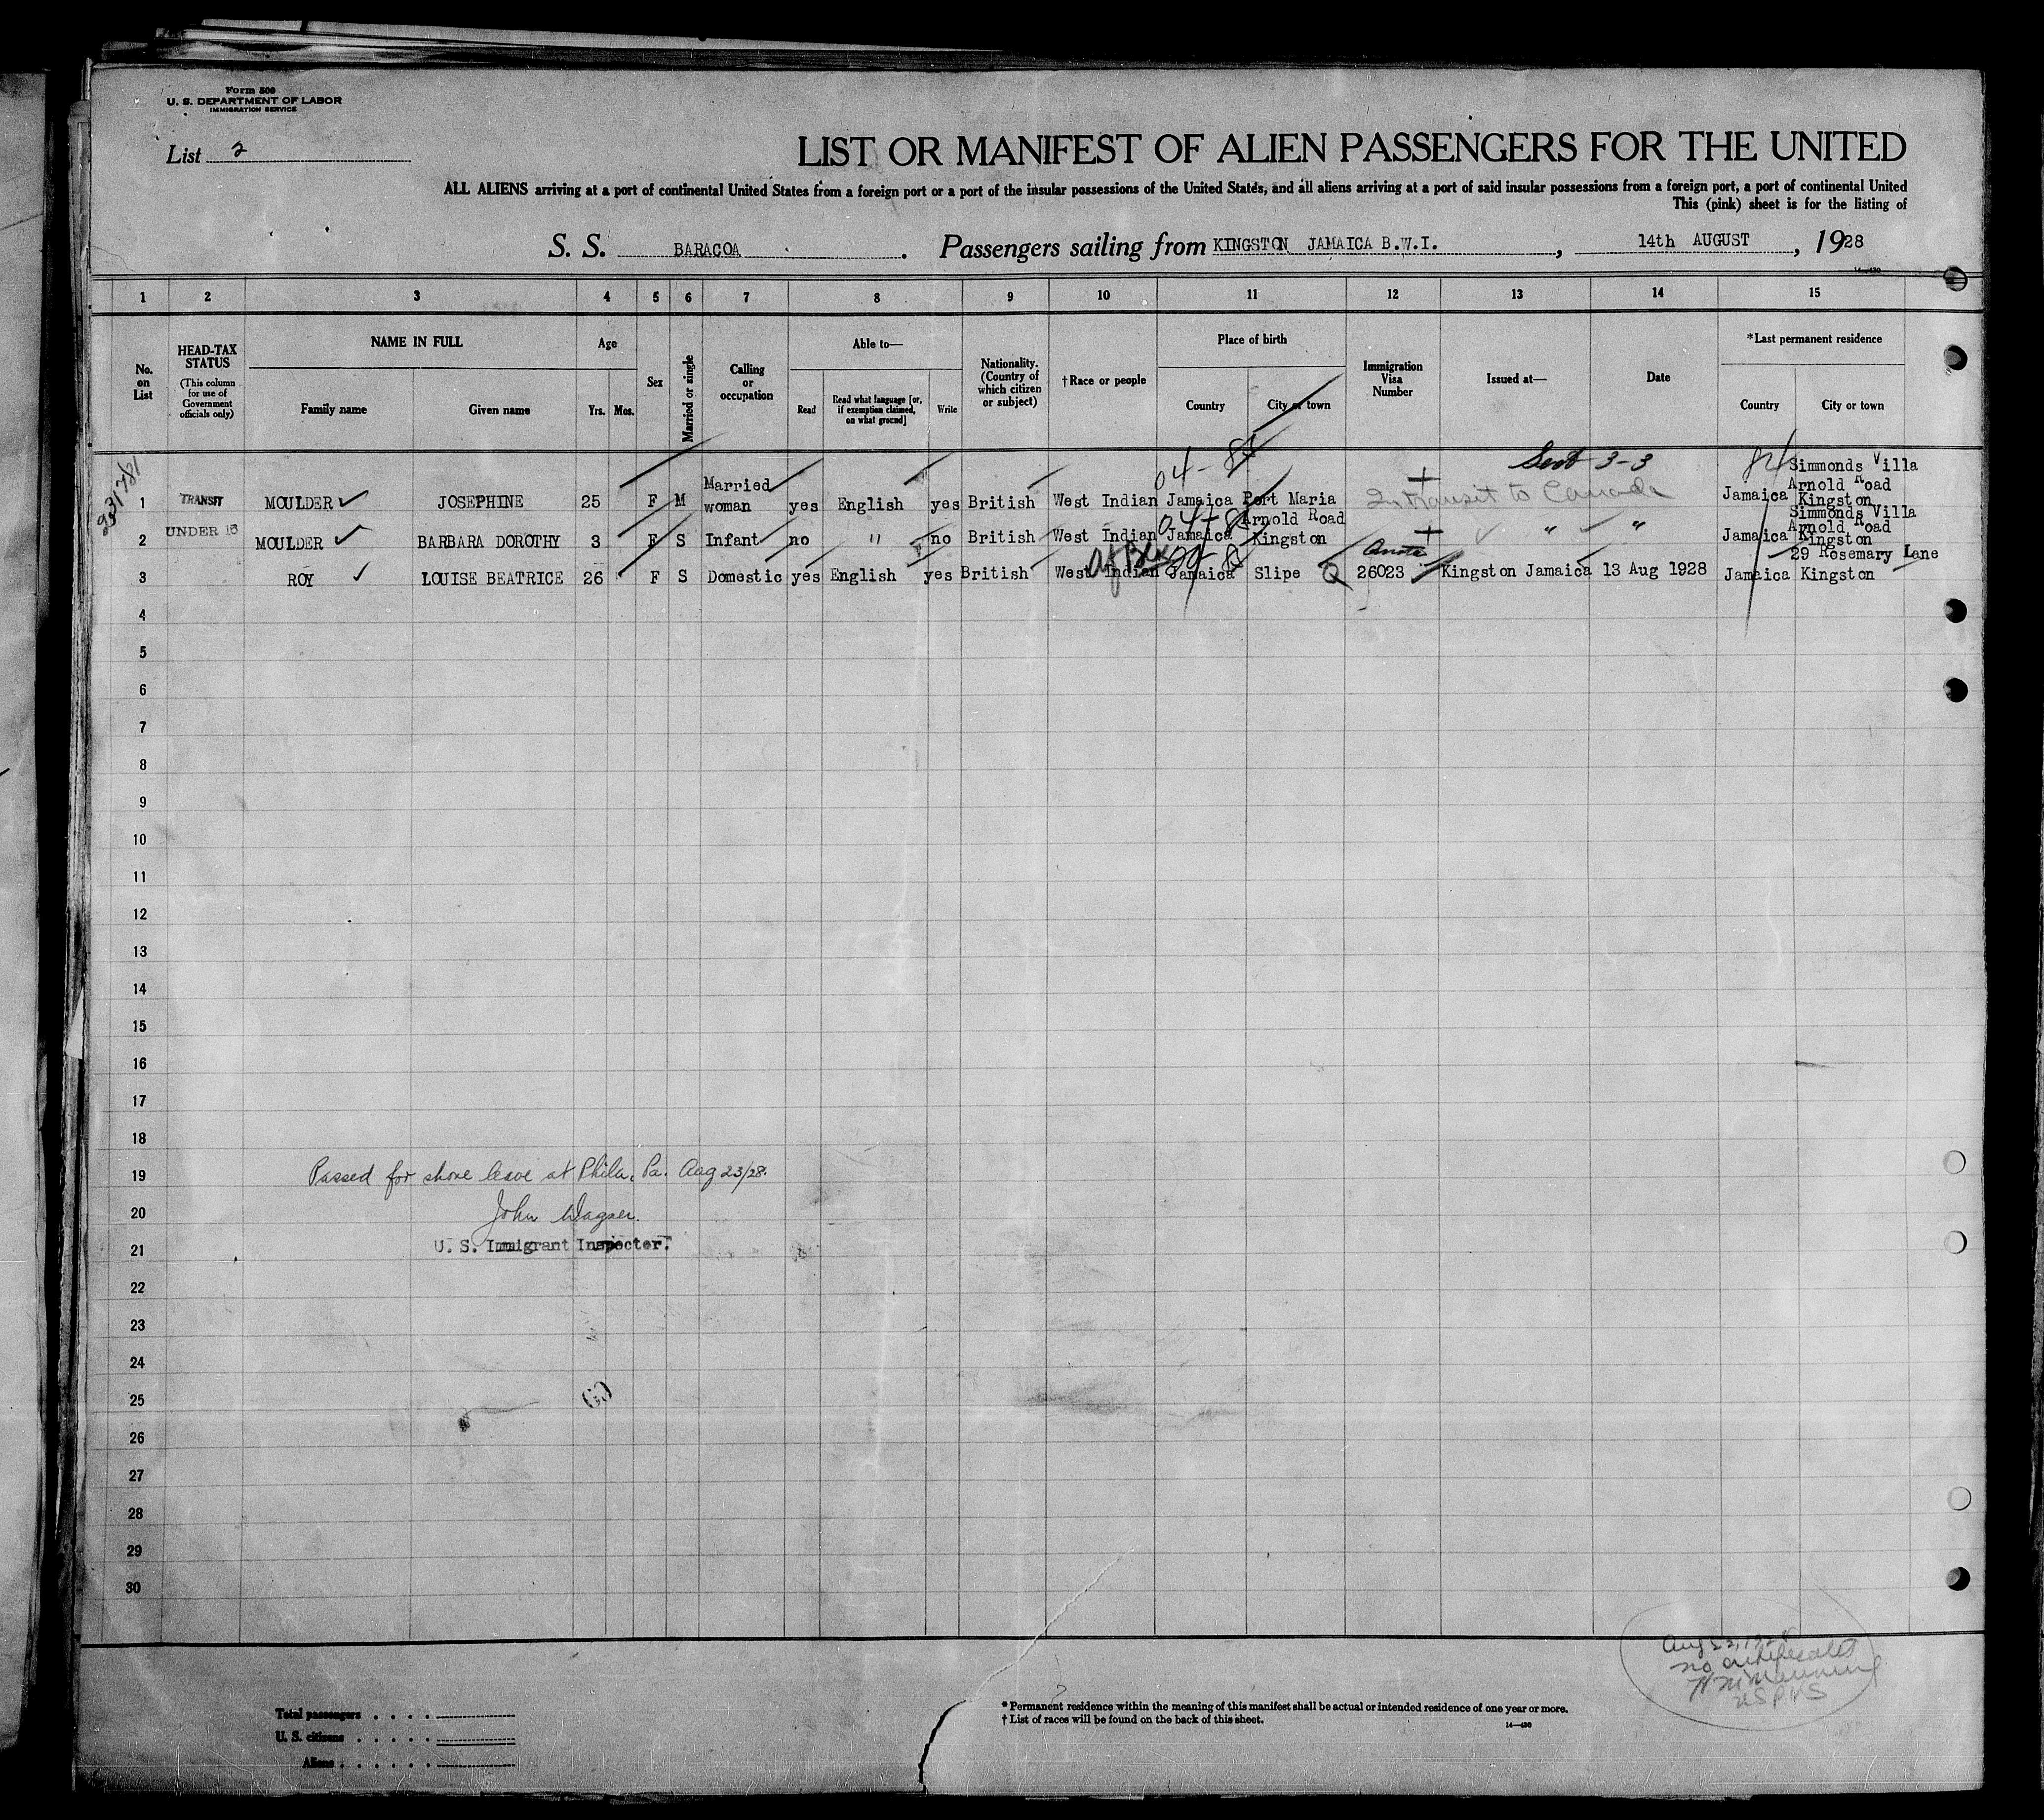 Form 500
U. S. DEPARTMENT OF LABOR
IMMIGRATION SERVICE
List 2
LIST OR MANIFEST OF ALIEN PASSENGERS FOR THE UNITED
ALL ALIENS arriving at a port of continental United States from a foreign port or a port of the insular possessions of the United States, and all aliens arriving at a port of said insular possessions from a foreign port, a port of continental United
This (pink) sheet is for the listing of
S. S. BARACOA. Passengers sailing from KINGSTON JAMAICA B.W.I., 14th AUGUST, 1928
1 2 3 4 5 6 7 8 9 10 11 12 13 14 15
No. on List
HEAD-TAX STATUS (This column for use of Government officials only)
NAME IN FULL
Family name Given name
Age
Yrs. Mos.
Sex
Married or single
Calling or occupation
Able to—
Read
Read what language [or, if exemption claimed, on what ground]
Write
Nationality. (Country of which citizen or subject)
†Race or people
Place of birth
Country City or town
Immigration Visa Number
Issued at—
Date
*Last permanent residence
Country City or town
04-84 3-3
1 TRANSIT MOULDER JOSEPHINE 25 F M Married woman yes English yes British West Indian Jamaica Port Maria In transit to Canada Jamaica Simmonds Villa Arnold Road Kingston
2 UNDER 16 MOULDER BARBARA DOROTHY 3 F S Infant no " no British West Indian Jamaica Arnold Road Kingston " " Jamaica Simmonds Villa Arnold Road Kingston
3 ROY LOUISE BEATRICE 26 F S Domestic yes English yes British West Indian Jamaica Slipe Q 26023 Kingston Jamaica 13 Aug 1928 Jamaica 29 Rosemary Lane Kingston
4
5
6
7
8
9
10
11
12
13
14
15
16
17
18
19 Passed for shore leave at Phila. Pa. Aug 23/28.
20 John Wagner.
21 U. S. Immigrant Inspector.
22
23
24
25
26
27
28
29
30
Total passengers
U. S. citizens
Aliens
* Permanent residence within the meaning of this manifest shall be actual or intended residence of one year or more.
† List of races will be found on the back of this sheet.
14—430